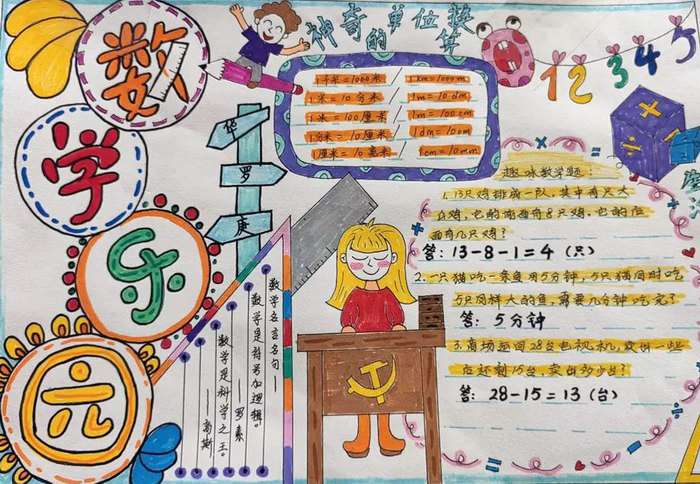 数学乐园
神奇的单位换算
1千米=1000米 / 1km=1000m
1米=10分米 / 1m=10dm
1米=100厘米 / 1m=100cm
1分米=10厘米 / 1dm=10cm
1厘米=10毫米 / 1cm=10mm
1 2 3 4 5
华
罗
庚
数学名言名句——
数学是符号加逻辑。
——罗素
数学是科学之王。
——高斯
趣味数学题:
1.13只鸡排成一队,其中有只大
公鸡,它的前面有8只鸡,它的后
面有几只鸡?
答:13-8-1=4(只)
2.一只猫吃一条鱼用5分钟,5只猫同时吃
5只同样大的鱼,需要几分钟吃完?
答:5分钟
3.商场运回28台电视机,卖出一些
后还剩15台,卖出多少台?
答:28-15=13(台)